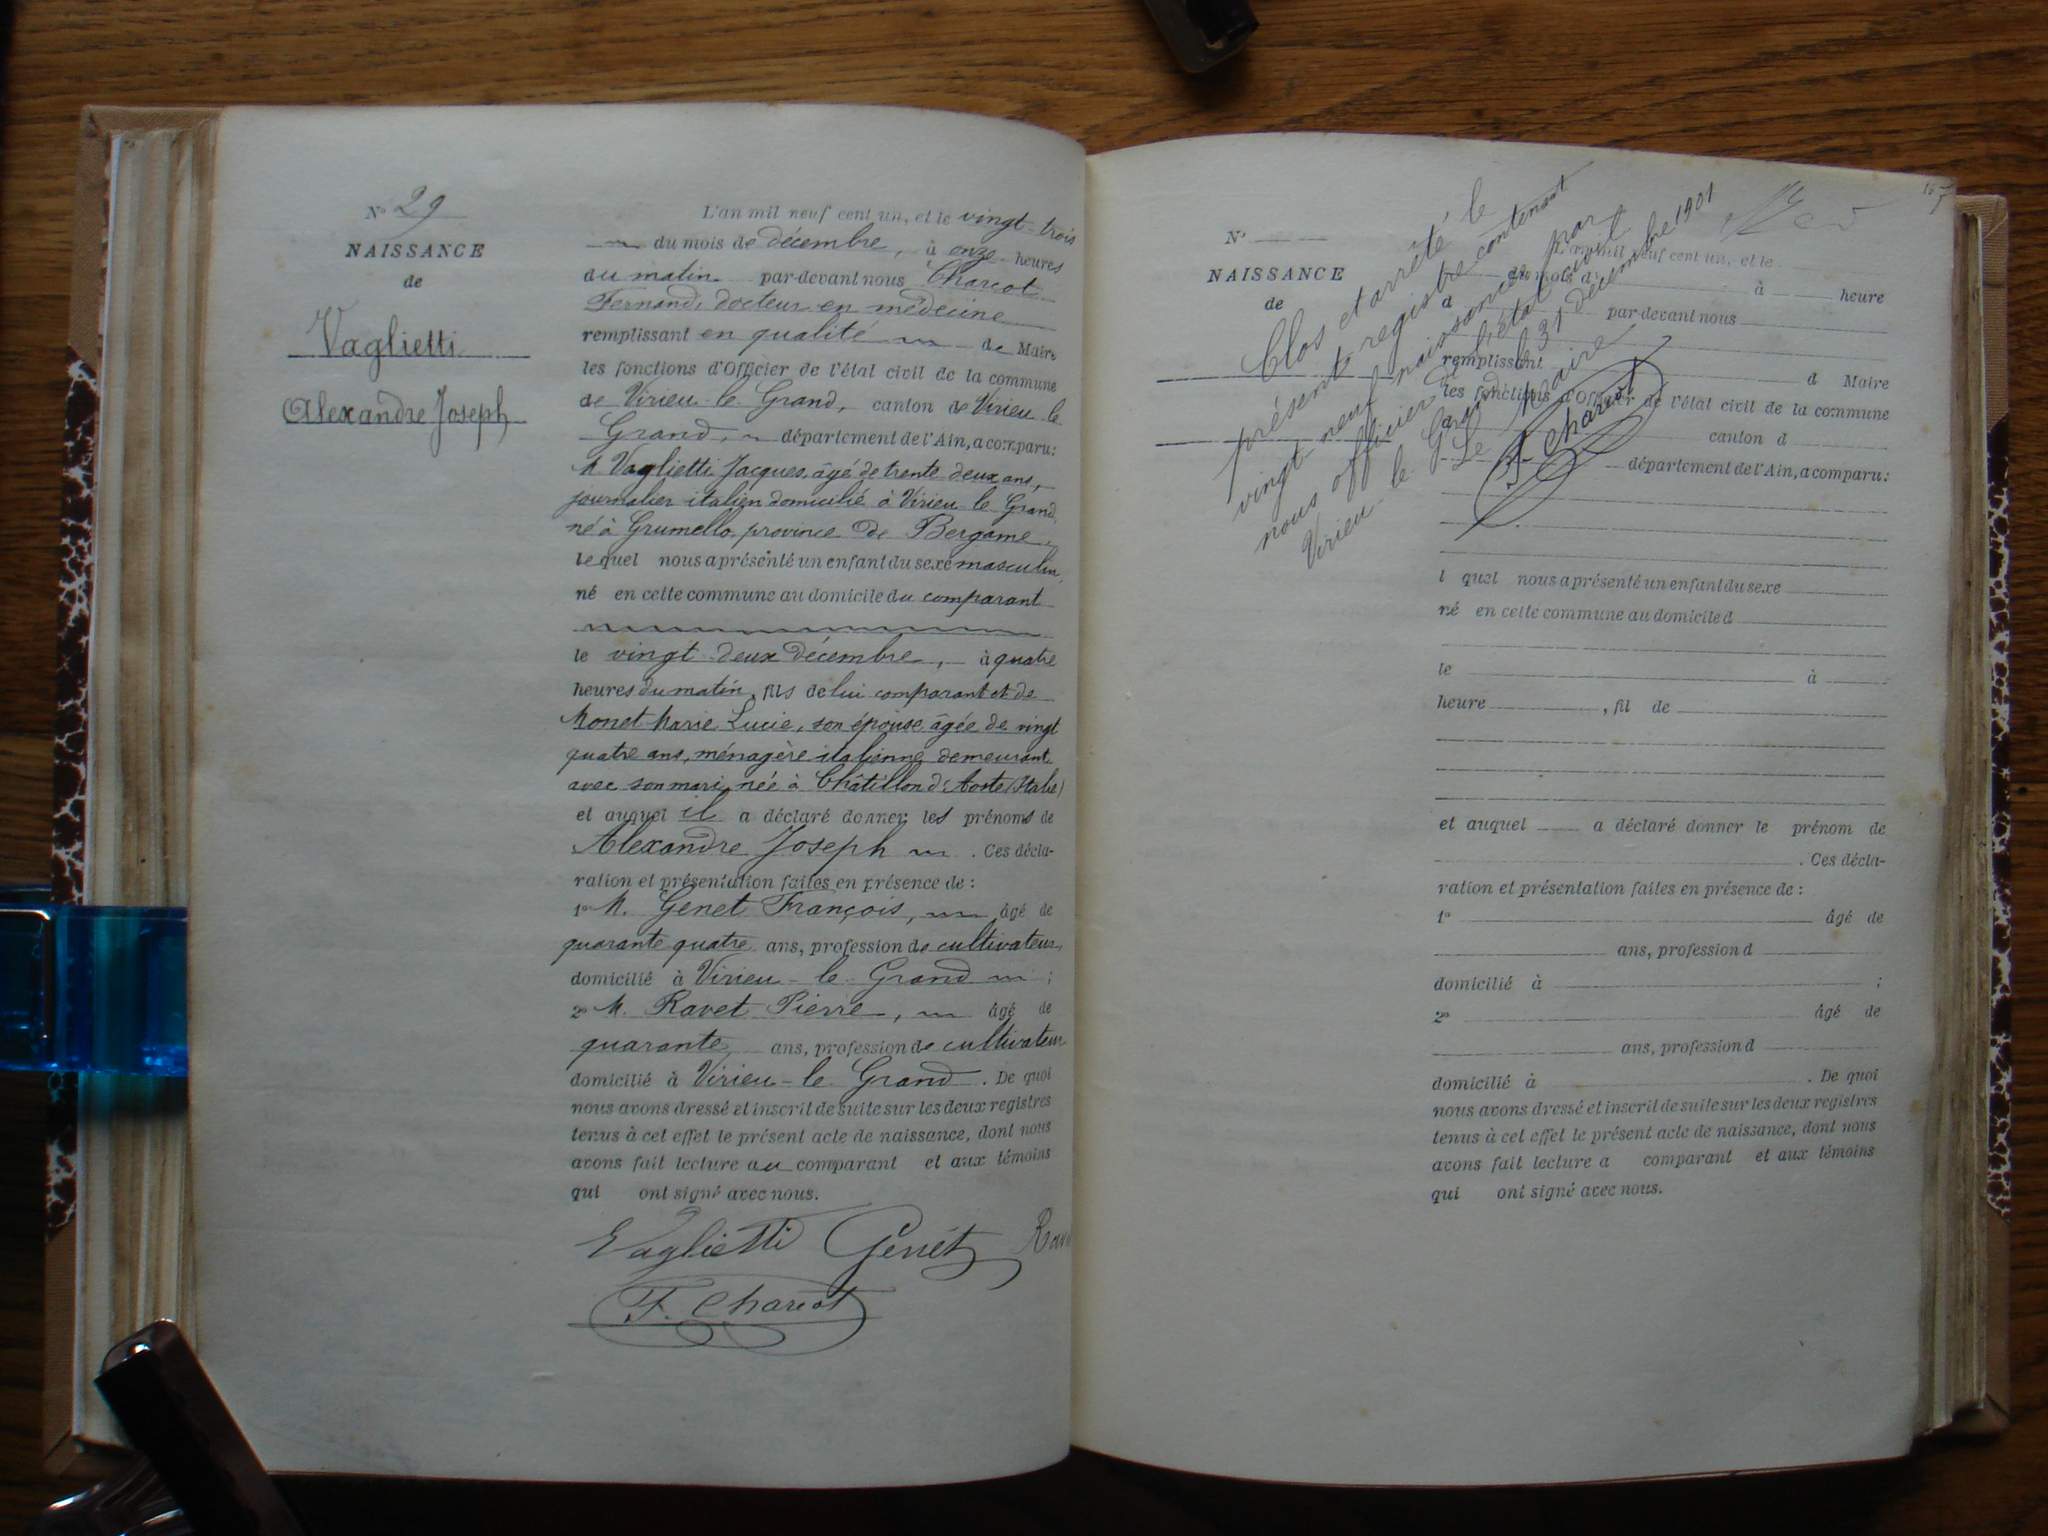 N° 29
NAISSANCE
de
Vaglietti
Alexandre Joseph
L'an mil neuf cent un, et le vingt-trois
du mois de décembre, à onze heures
du matin par-devant nous Charcot
Fernand, docteur en médecine
remplissant en qualité de Maire
les fonctions d'Officier de l'état civil de la commune
de Virieu-le-Grand, canton de Virieu-le
Grand, département de l'Ain, a comparu:
M. Vaglietti Jacques, âgé de trente-deux ans,
journalier italien domicilié à Virieu-le-Grand,
né à Grumello province de Bergame,
lequel nous a présenté un enfant du sexe masculin,
né en cette commune au domicile du comparant
le vingt-deux décembre, à quatre
heures du matin, fils de lui comparant et de
Monet Marie Lucie, son épouse âgée de vingt
quatre ans, ménagère italienne, demeurant
avec son mari, née à Châtillon d'Aoste (Italie)
et auquel il a déclaré donner les prénoms de
Alexandre Joseph . Ces décla-
ration et présentation faites en présence de :
1° M. Genet François, âgé de
quarante quatre ans, profession de cultivateur,
domicilié à Virieu-le-Grand ;
2° M. Ravet Pierre, âgé de
quarante, ans, profession de cultivateur
domicilié à Virieu-le-Grand . De quoi
nous avons dressé et inscrit de suite sur les deux registres
tenus à cet effet le présent acte de naissance, dont nous
avons fait lecture au comparant et aux témoins
qui ont signé avec nous.
Vaglietti Genet
F. Charcot
N°
NAISSANCE
de
L'an mil neuf cent un, et le
du mois d à heure
d par-devant nous
remplissant d Maire
les fonctions d'Officier de l'état civil de la commune
canton d
département de l'Ain, a comparu:
l quel nous a présenté un enfant du sexe
né en cette commune au domicile d
le à
heure , fil de
et auquel a déclaré donner le prénom de
. Ces décla-
ration et présentation faites en présence de :
1° âgé de
ans, profession d
domicilié à ;
2° âgé de
ans, profession d
domicilié à . De quoi
nous avons dressé et inscrit de suite sur les deux registres
tenus à cet effet le présent acte de naissance, dont nous
avons fait lecture a comparant et aux témoins
qui ont signé avec nous.
Clos et arrêté le
présent registre contenant
vingt-neuf naissances par
nous officier de l'état civil
Virieu-le-Grand le 31 décembre 1901
Le Maire
F. Charcot